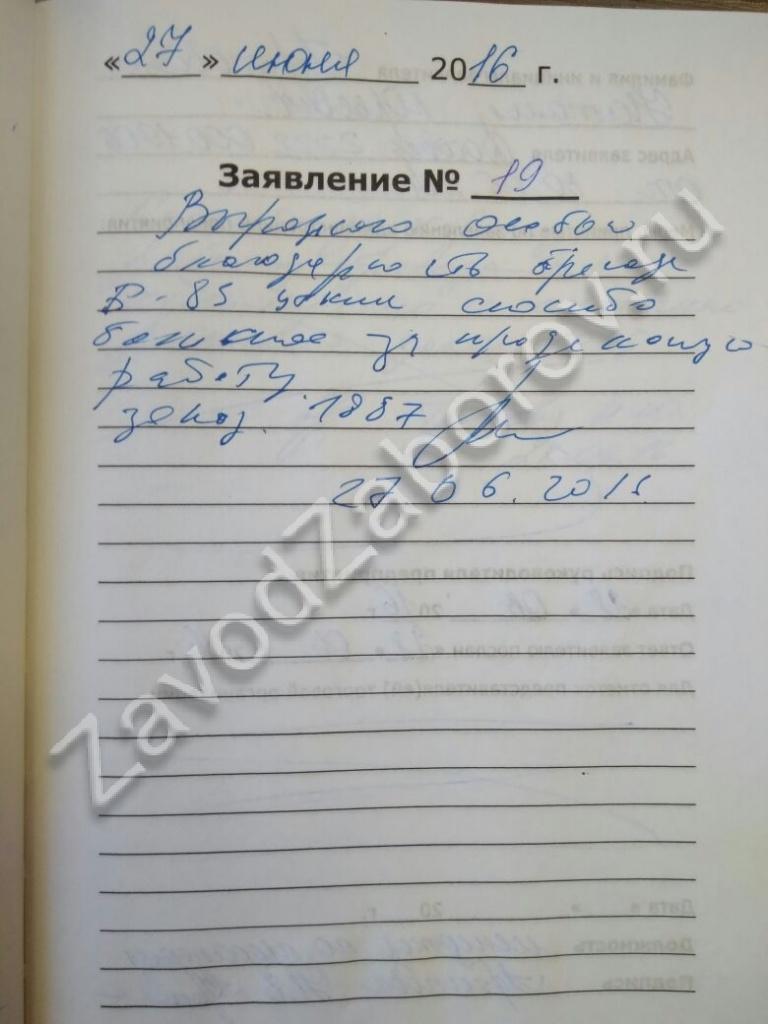 «27» июня 2016 г.
Заявление № 19
Выражаю особую
благодарность бригаде
Б-85
большое за проделанную
работу.
заказ. 1887
27 06.201
ZavodZaborov.ru